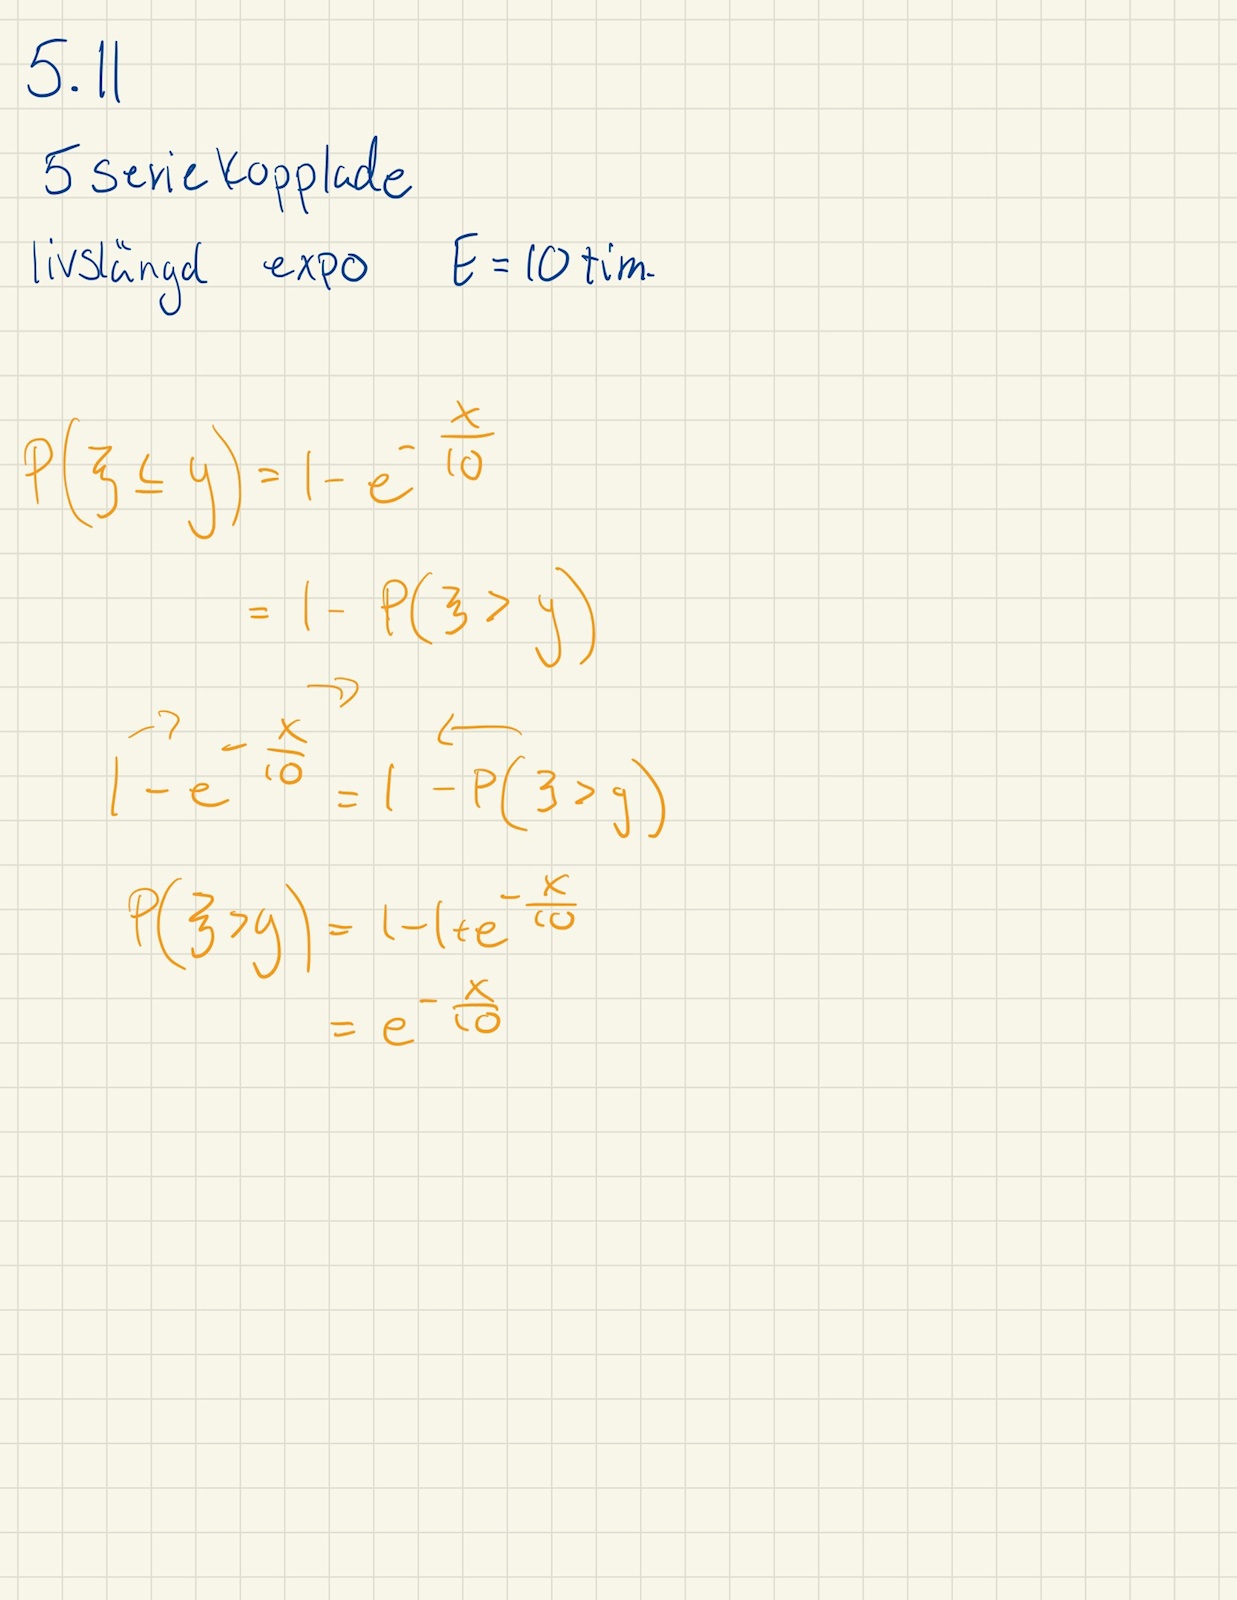 5.11
5 seriekopplade
livslängd expo E = 10 tim.
P(ξ ≤ y) = 1 - e^{-x/10}
= 1 - P(ξ > y)
1 - e^{-x/10} = 1 - P(ξ > y)
P(ξ > y) = 1 - 1 + e^{-x/10}
= e^{-x/10}